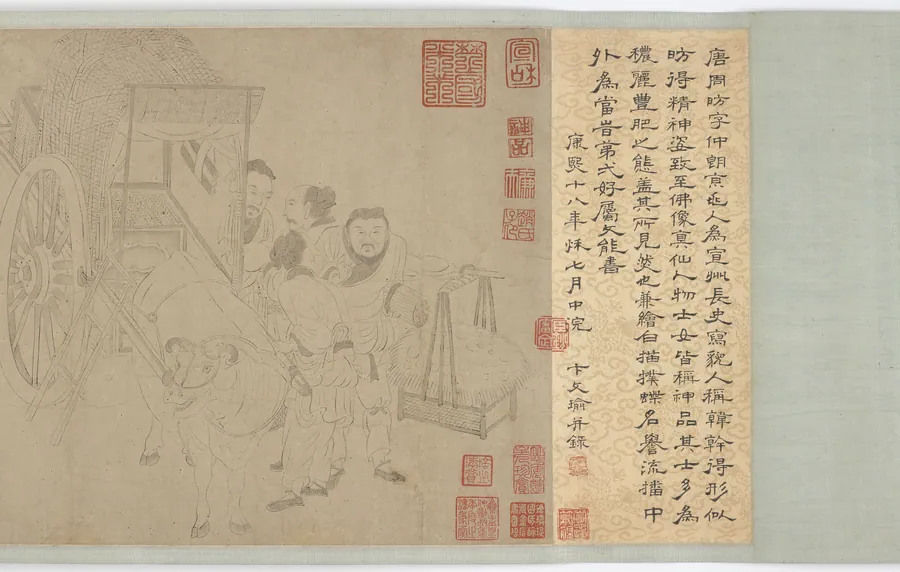 唐周昉字仲朗京兆人為宣州長史寫貌人稱韓幹得形似
昉得精神姿致至佛像真仙人物士女皆稱神品其士多為
穠麗豐肥之態蓋其所見然也兼繪白描撲蝶名譽流播中
外為當時第弍好屬文能書
康熙十八年秋七月中浣 卞文瑜并錄
宣和
神品